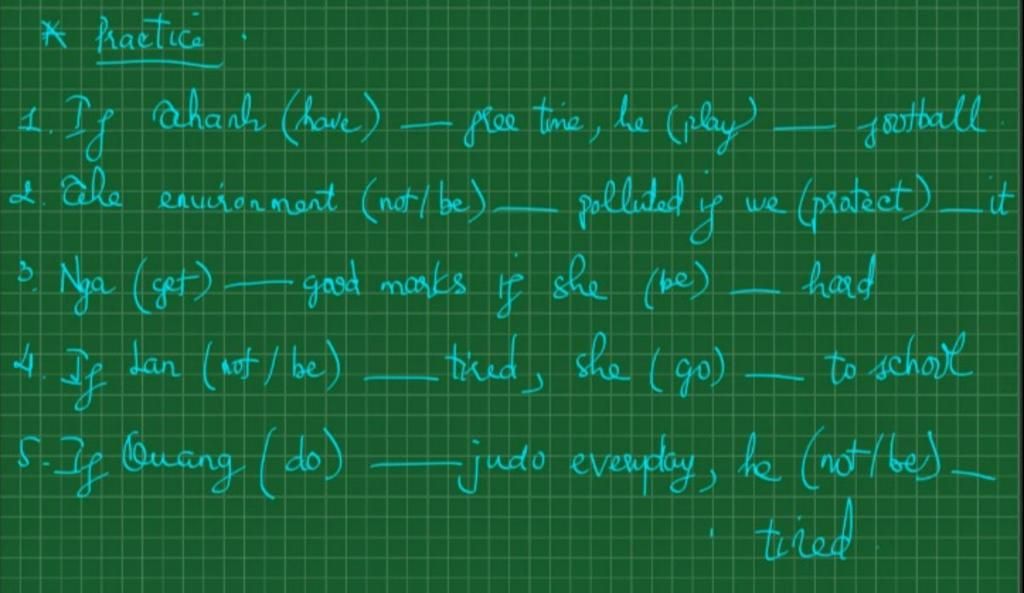 * Practice.
1. If Thanh (have) — free time, he (play) — football.
2. The environment (not/be) — polluted if we (protect) — it
3. Nga (get) — good marks if she (be) — hard
4. If Lan (not/be) — tired, she (go) — to school
5. If Quang (do) — judo everyday, he (not/be) —
tired.